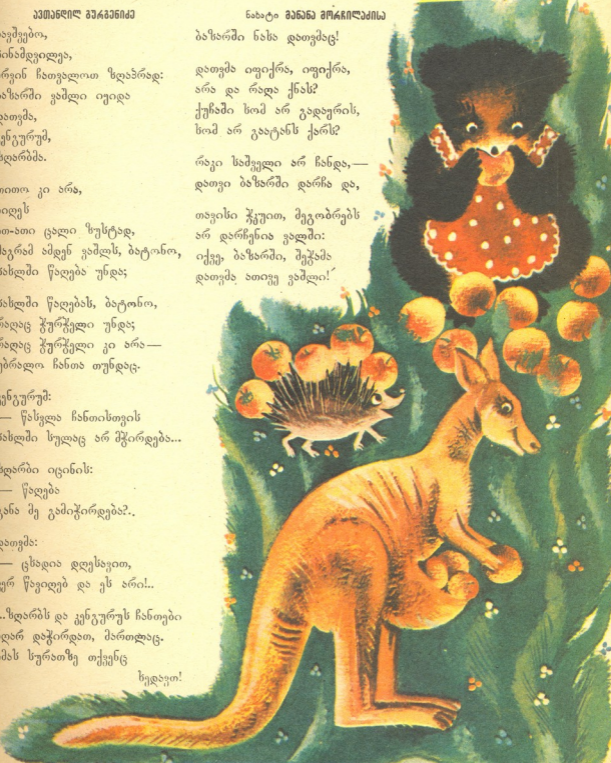 ავთანდილ გურგენიძე
ნახატი მანანა მორჩილაძისა
ბავშვებო,
წინამდვილეა,
ნურვინ ჩათვალოთ ზღაპრად:
ბაზარში ვაშლი იყიდა
დათვმა,
კენგურუმ,
ზღარბმა.
თითო კი არა,
იყიდეს
ათ-ათი ცალი ზუსტად,
მაგრამ ამდენ ვაშლს, ბატონო,
სახლში წაღება უნდა;
სახლში წაღებას, ბატონო,
რაღაც ჭურჭელი უნდა;
რაღაც ჭურჭელი კი არა—
უბრალო ჩანთა თუნდაც.
კენგურუმ:
— წასვლა ჩანთისთვის
სახლში სულაც არ მჭირდება...
ზღარბი იცინის:
— წაღება
განა მე გამიჭირდება?..
დათვმა:
— ცხადია დღესავით,
ვერ წავიღებ და ეს არი!..
...ზღარბს და კენგურუს ჩანთები
აღარ დაჭირდათ, მართლაც.
ამას სურათზე თქვენც
ხედავთ!
ბაზარში ნახა დათვმაც!
დათვმა იფიქრა, იფიქრა,
არა და რაღა ქნას?
ქუჩაში ხომ არ გადაყრის,
ხომ არ გაატანს ქარს?
რაკი საშველი არ ჩანდა,—
დათვი ბაზარში დარჩა და,
თავისი ჭკუით, მეგობრებს
არ დარჩენია ვალში:
იქვე, ბაზარში, შეჭამა
დათვმა ათივე ვაშლი!